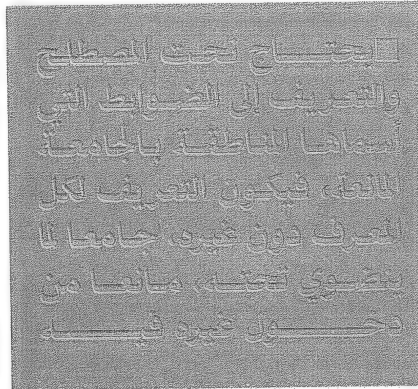 يحتــاج نحت المصطلح
والتعريف إلى الضوابط التي
أسماها المناطقة بالجامعة
المانعة، فيكون التعريف لكل
المعرف دون غيره، جامعا لما
ينضوي تحته، مانعا من
دخــول غيره فيــه